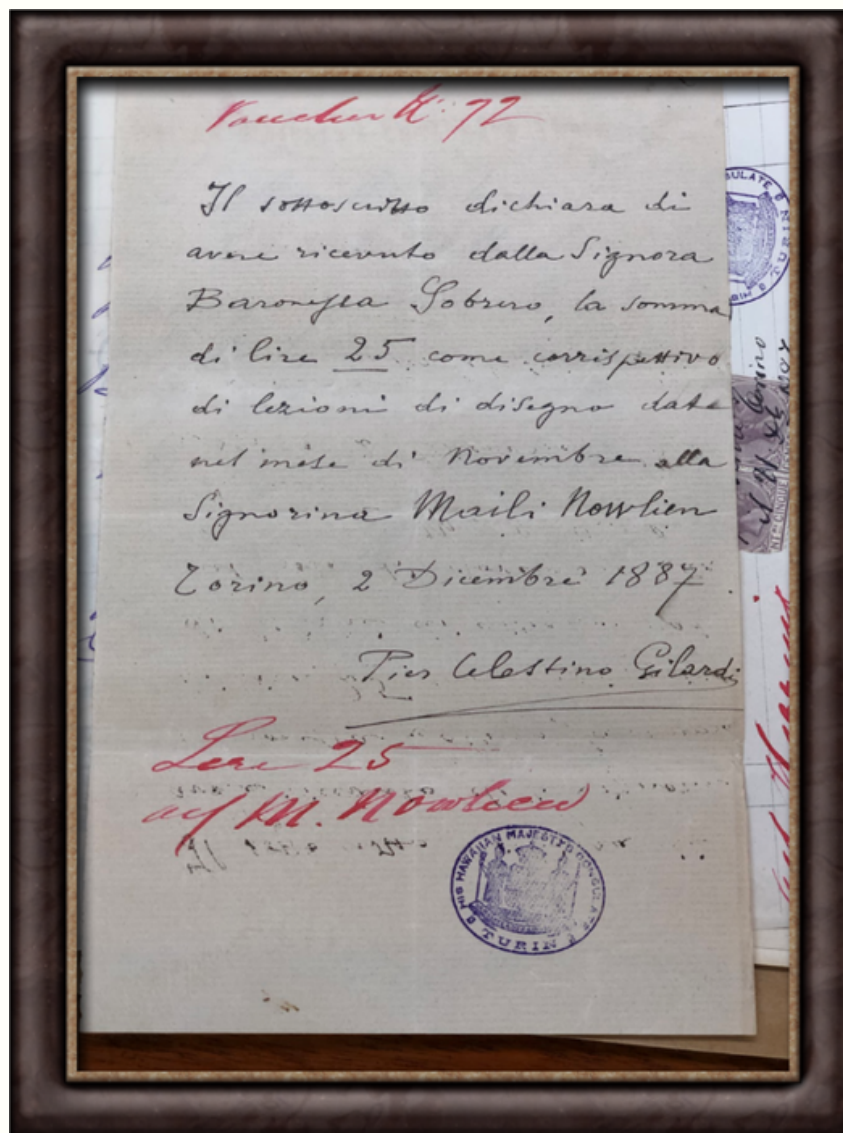 Voucher N: 72
Il sottoscritto dichiara di
avere ricevuto dalla Signora
Baronessa Sobrero, la somma
di lire 25 come corrispettivo
di lezioni di disegno date
nel mese di Novembre alla
Signorina Maili Nowlien
Torino, 2 Dicembre 1887
Pier Celestino Gilardi
Lire 25
a/c M. Nowlein
HIS HAWAIIAN MAJESTY'S CONSULATE
TURIN